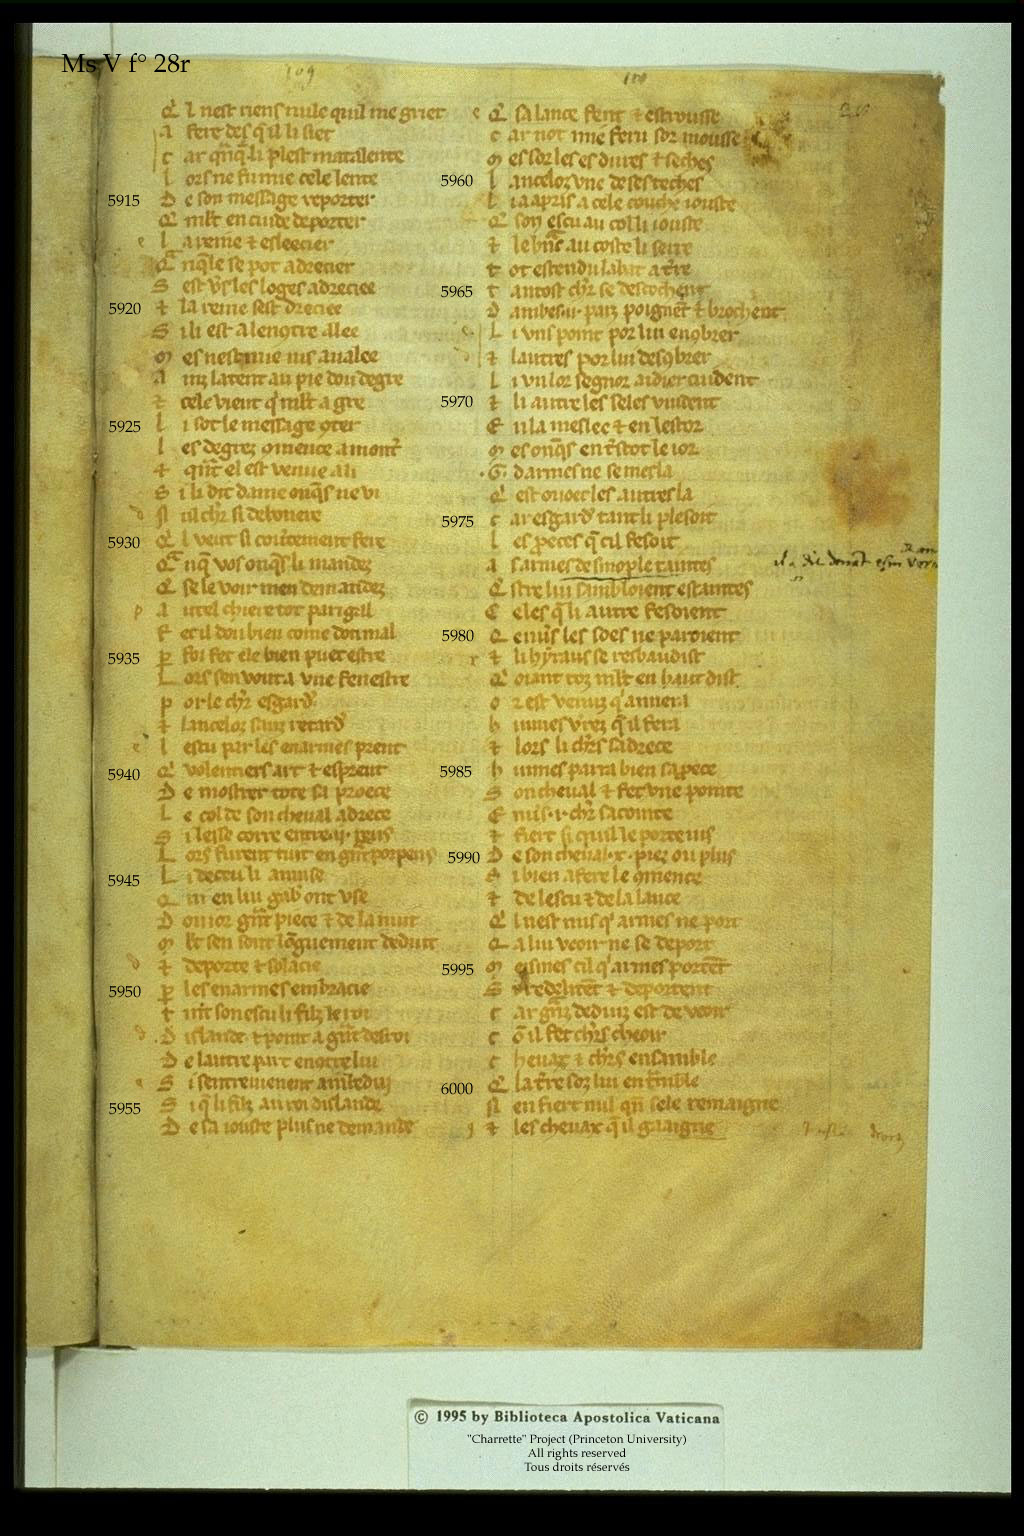 Ms V f° 28r
109
Q' l nest riens nule qui me griet
a fere des q'il li siet
c ar q̃nq̃ li plest matalente
l ors ne fu mie cele lente
5915 D e son message reporter
Q' ml't en cuide deporter
l a reine et esleecier
Q nq̃le se pot adrecier
S est v's les loges adreciee
5920 ⁊ la reine sest dreciee
S ili est alenɔtre alee
m es nest mie ius aualee
a inz latent au pie dou degre
⁊ cele vient q' ml't a gre
5925 l i sot le message ɔter
l es degrez ɔmence amont'
⁊ q̃nt el est venue a li
S i li dit dame onq̃s ne vi
N ul ch'r si debonere
5930 Q' l veut si cointement fere
Q nq̃ vos onq̃s li mandez
Q se le voir men demandez
a utel chiere tot parigal
F et il dou bien come don mal
5935 p foi fet ele bien puet estre
L ors sen vont a vne fenestre
p or le ch'r esgard'
⁊ lancelos sanz retard'
l escu par les enarmes prent
5940 Q' volentiers art ⁊ esprent
D e mostrer tote sa proece
L e col de son cheual adrece
S i lesse corre entre .ij. rens
L ors furent tuit en g̃nt porpens
5945 L i deceu li amuse
Q ui en lui gab' ont vse
D ou ior g̃nt piece ⁊ de la nuit
m l't sen sont lõguement deduit
⁊ deporte ⁊ solacie
5950 p les enarmes embracie
t int son escu li filz le roi
D islande ⁊ point a g̃nt desroi
D e lautre part enɔtre lui
S i sentreuienent amedui
5955 S i q̃ li filz au roi dislande
D e sa iouste plus ne demande
Q' sa lance fent ⁊ estrousse
c ar not mie feru sor mousse
m es sor les es dures ⁊ seches
5960 l ancelos vne de ses teches
L i a apris a cele couche iouste
Q' son escu au col li iouste
⁊ le br̃s au coste li serre
t ot estendu labat a t're
5965 t antost ch'r se descochent
D ambes .ii. parz poignet ⁊ brochent
L i vns point por lui enɔbrer
⁊ lautres por lui desɔbrer
L i vn lor segnor aidier cuident
5970 ⁊ li autre les seles vuident
E n la meslee ⁊ en lestor
m es onq̃s en t'stot le ior
G. darmes ne se mesla
Q' est ouoec les autres la
5975 c ar esgard' tant li plesoit
l es proeces q̃ cil fesoit
a s armes de sinople taintes
Q estre lui sambloient estaintes
C eles q̃ li autre fesoient
5980 Q en u's les soes ne paroient
⁊ li hyraus se resbaudist
Q oiant toz ml't en haut dist
o r est venuz q' aunera
h uimes vrez q̃ il fera
⁊ lors li ch'rs sadrece
5985 h uimes parra bien sa pece
S on cheual ⁊ fet vne pointe
E nuis .i. ch'r sacointe
⁊ fiert si quil le porte ius
5990 D e son cheual .x. piez ou plus
S i bien a fere le ɔmence
⁊ de lescu ⁊ de la lance
Q' l nest nus q' armes ne port
Q a lui veoir ne se deport
5995 m eismes cil q' armes portẽt
S e delitẽt ⁊ deportent
c ar g̃nz deduiz est de veoir
c õ il fet ch'rs cheoir
c heuax ⁊ ch'rs ensamble
6000 Q la t're soz lui en tr̃mble
N en fiert nul qñ sele remaigne
⁊ les cheuax q̃ il gaaigne
© 1995 by Biblioteca Apostolica Vaticana
"Charrette" Project (Princeton University)
All rights reserved
Tous droits réservés